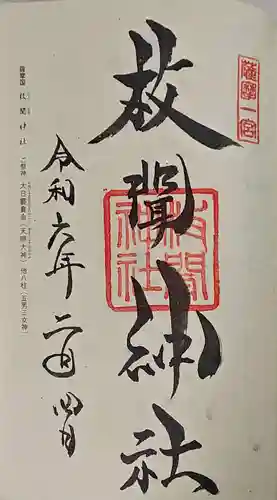 薩摩一宮
枚聞神社
枚聞神社
令和六年二月四日
薩摩国 枚聞神社 ご祭神 大日孁貴命(天照大神) 他八柱(五男三女神)